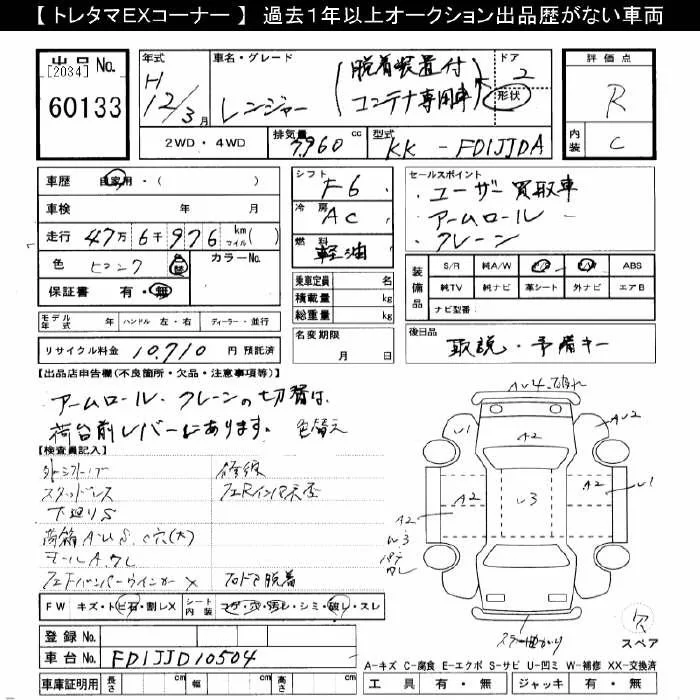 【 トレタマEXコーナー 】 過去1年以上オークション出品歴がない車両
出品 No.
[2034]
60133
年式
H
12/3月
車名・グレード
レンジャー
(脱着装置付
コンテナ専用車)
ドア
2
形状
評価点
R
内装
C
2WD・4WD
排気量
7,960 cc
型式
KK-FD1JJDA
車歴 自家用・( )
車検 年 月
走行 47万 6千 976 km マイル( )
色
替
カラーNo.
保証書 有・無
モデル年式 年 ハンドル 左・右 ディーラー・並行
リサイクル料金 10,710 円 預託済
シフト
F6
冷房
AC
燃料
軽油
乗車定員 名
積載量 kg
総重量 kg
名変期限
月 日
セールスポイント
・ユーザー買取車
・アームロール
・クレーン
装備品
S/R 純A/W ABS
純TV 純ナビ 革シート 外ナビ エアB
ナビ型番
後日品
取説・予備キー
【出品店申告欄(不良箇所・欠品・注意事項等)】
アームロール・クレーンの切替は
荷台前レバーにあります。 色替え
【検査員記入】
スタッドレス
下廻りS
FW キズ・トビ石・割レX
シート内装 コゲ・穴・汚レ・シミ・破レ・スレ
登録 No.
車台 No. FD1JJD10504
車庫証明用 長さ cm 幅 cm 高さ cm
A2
AU2
U1
A2
U3
A2
U1
A2
U3
欠
スペア
A-キズ C-腐食 E-エクボ S-サビ U-凹ミ W-補修 XX-交換済
工具 有・無 ジャッキ 有・無